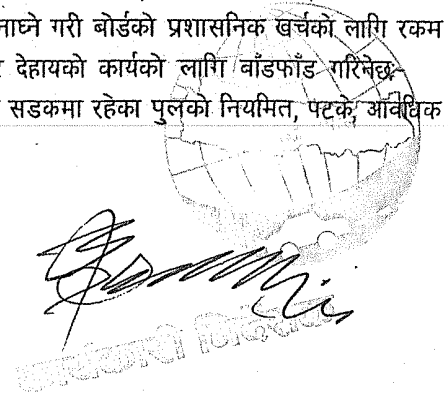 नाघ्ने गरी बोर्डको प्रशासनिक खर्चको लागि रकम
देहायको कार्यको लागि बाँडफाँड गरिनेछः-
सडकमा रहेका पुलको नियमित, पटके, आवधिक
कार्यकारी निर्देशक